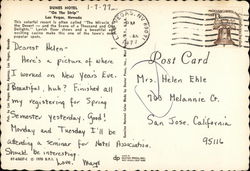 1-7-77
DUNES HOTEL
"On The Strip"
Las Vegas, Nevada
This colorful resort is often called "The Miracle in
the Desert" and the Scene of a Thousand and One
Delights."
LAS VEGAS, NV
PM
1977
Dearest Helen-
Here's a picture of where
I worked on New Year's Eve.
Beautiful, huh? Finished all
my registering for Spring
Semester yesterday. Good!
Monday and Tuesday I'll be
attending a seminar for Hotel Association.
Should be interesting.
Love, Marge
Post Card
Mrs. Helen Ehle
760 Melannie Ct.
San Jose, California
95116